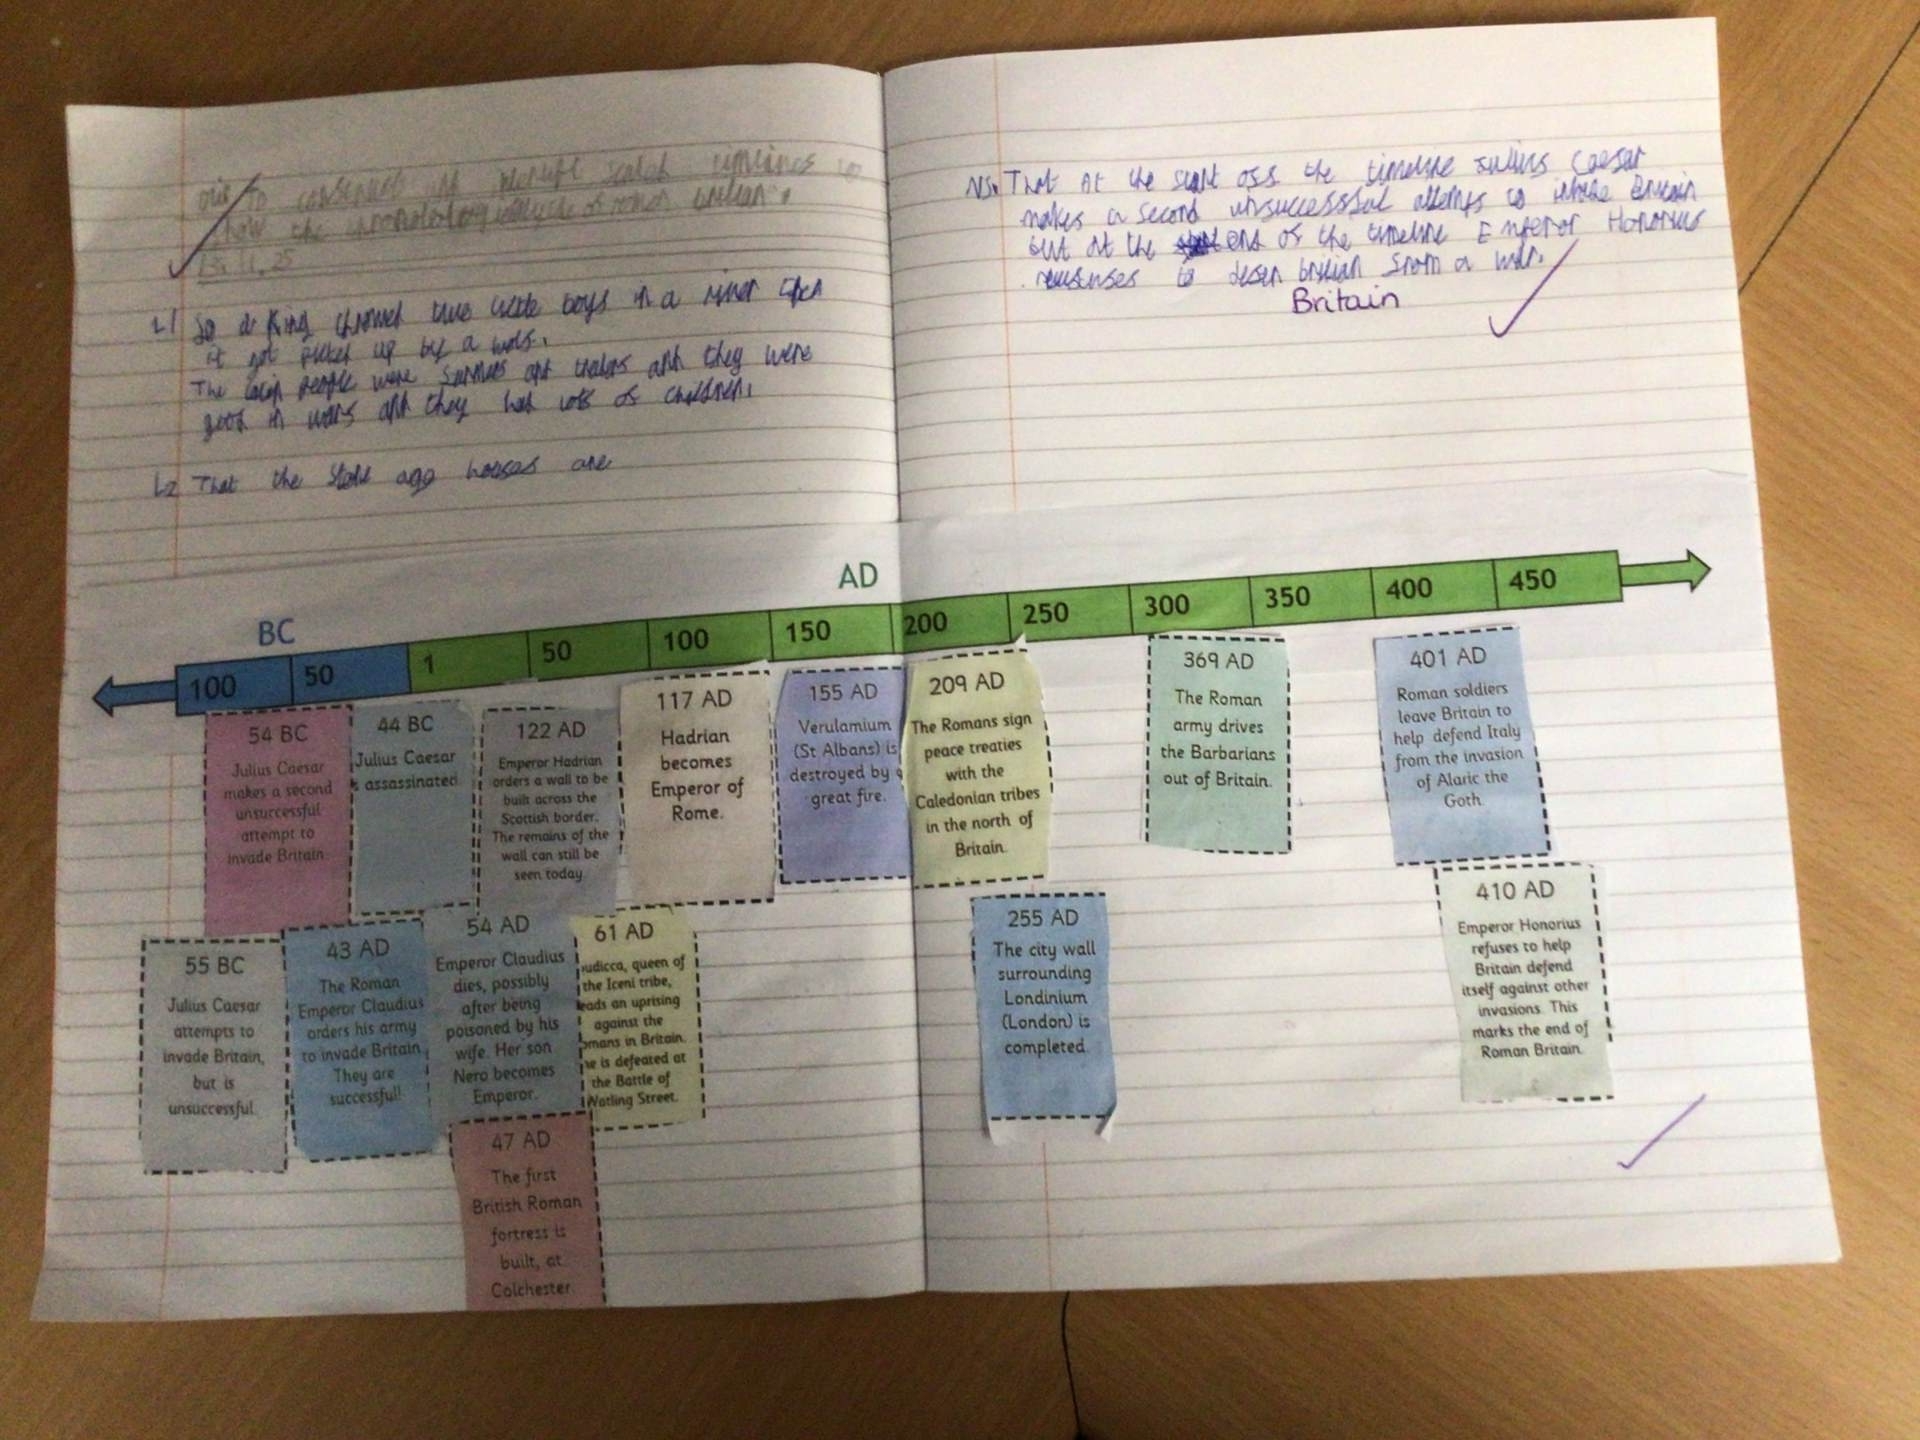 to construct scaled timelines to
show the of roman
L1 So a King throwed two little boys in a river then
it got picked up by a wolf.
The latin people were and traders and they were
good in wars and they had lots of children.
L2 That the stone age houses are
NS. That At the start off the timeline Julius Caesar
makes a second unsuccessful attempt to Britain
but at the end of the timeline Emperor Honorius
to from a
Britain
BC
AD
100 50 1 50 100 150 200 250 300 350 400 450
54 BC
Julius Caesar
makes a second
unsuccessful
attempt to
invade Britain.
44 BC
Julius Caesar
assassinated.
122 AD
Emperor Hadrian
orders a wall to be
built across the
Scottish border.
The remains of the
wall can still be
seen today.
117 AD
Hadrian
becomes
Emperor of
Rome.
155 AD
Verulamium
(St Albans) is
destroyed by a
great fire.
209 AD
The Romans sign
peace treaties
with the
Caledonian tribes
in the north of
Britain.
369 AD
The Roman
army drives
the Barbarians
out of Britain.
401 AD
Roman soldiers
leave Britain to
help defend Italy
from the invasion
of Alaric the
Goth.
55 BC
Julius Caesar
attempts to
invade Britain,
but is
unsuccessful.
43 AD
The Roman
Emperor Claudius
orders his army
to invade Britain.
They are
successful!
54 AD
Emperor Claudius
dies, possibly
after being
poisoned by his
wife. Her son
Nero becomes
Emperor.
61 AD
udicca, queen of
the Iceni tribe,
eads an uprising
against the
omans in Britain.
he is defeated at
the Battle of
Watling Street.
255 AD
The city wall
surrounding
Londinium
(London) is
completed.
410 AD
Emperor Honorius
refuses to help
Britain defend
itself against other
invasions. This
marks the end of
Roman Britain.
47 AD
The first
British Roman
fortress is
built, at
Colchester.